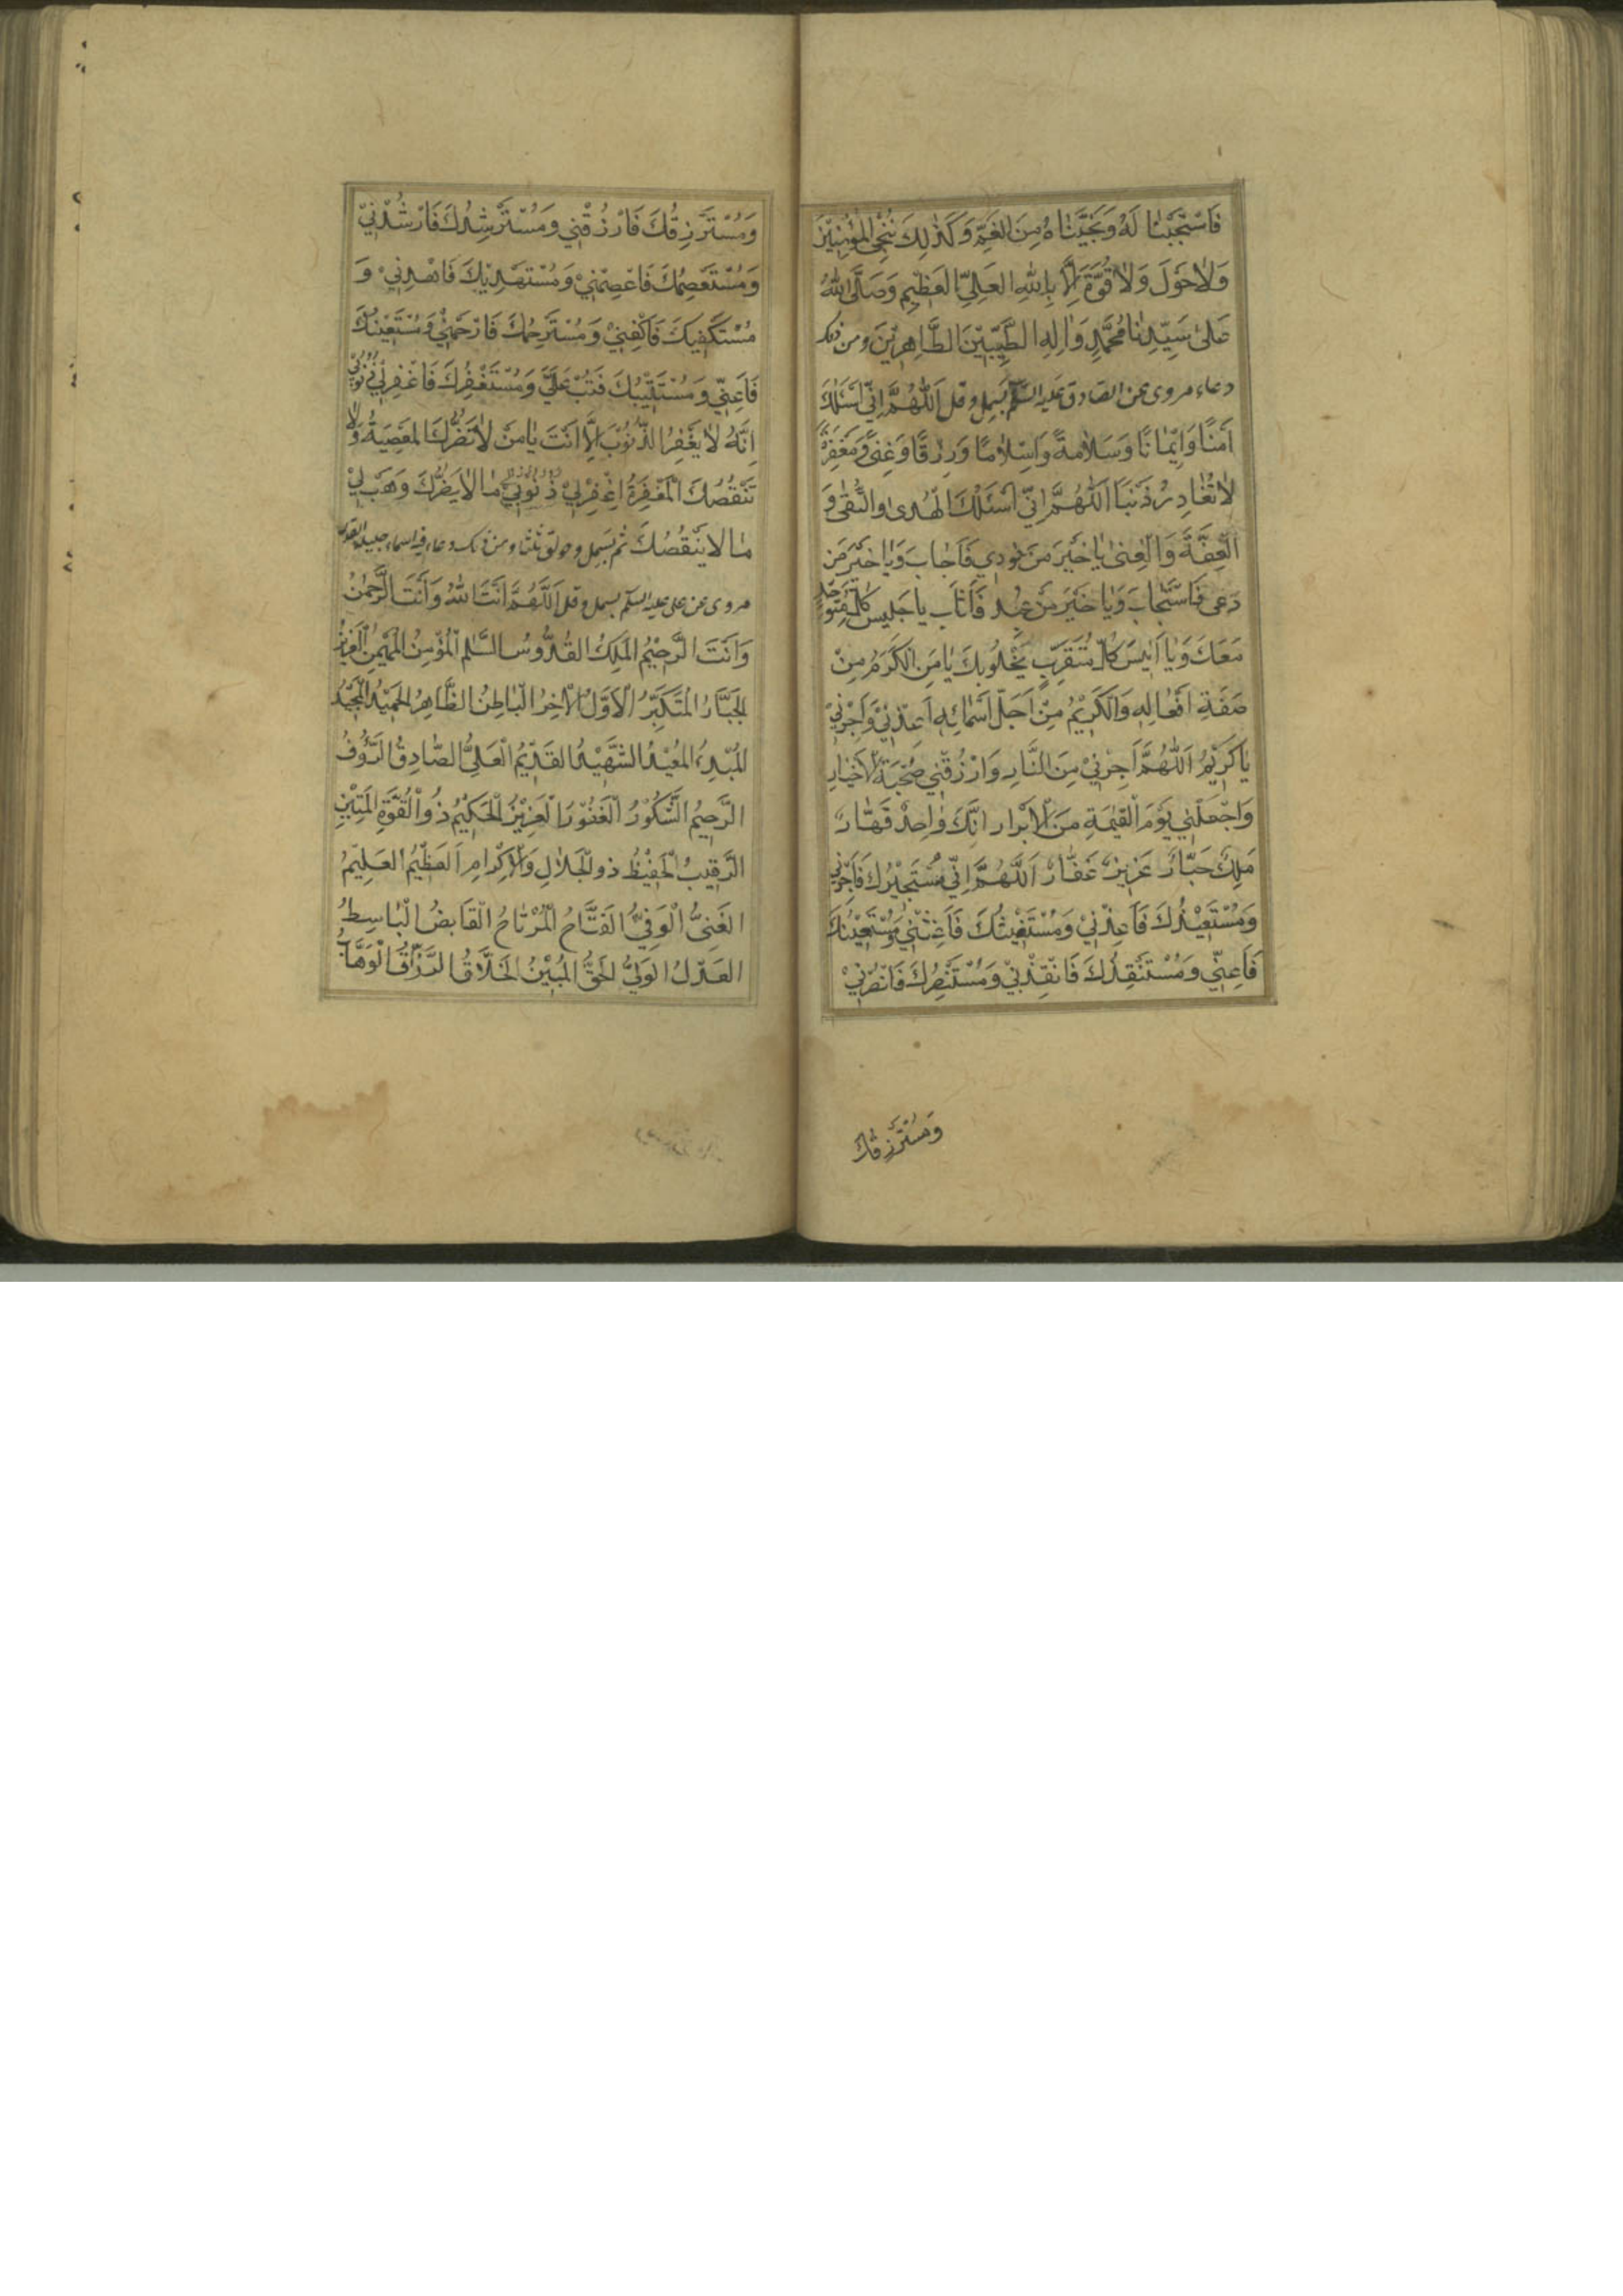 فَاسْتَجَبْنَا لَهُ وَنَجَّيْنَاهُ مِنَ الْغَمِّ وَكَذٰلِكَ نُنْجِي الْمُؤْمِنِيْنَ
وَلَاحَوْلَ وَلَا قُوَّةَ اِلَّا بِاللّٰهِ الْعَلِيِّ الْعَظِيْمِ وَصَلَّى اللّٰهُ
عَلٰى سَيِّدِنَا مُحَمَّدٍ وَاٰلِهِ الطَّيِّبِيْنَ الطَّاهِرِيْنَ ومن ذلك
دعاء مروى عن الصادق عليه السّلم بسمل وقل اَللّٰهُمَّ اِنِّي اَسْئَلُكَ
اَمْنًا وَاِيْمَانًا وَسَلَامَةً وَاِسْلَامًا وَرِزْقًا وَغِنًى وَمَغْفِرَةً
لَا تُغَادِرُ ذَنْبًا اَللّٰهُمَّ اِنِّي اَسْئَلُكَ الْهُدٰى وَالتُّقٰى وَ
الْعِفَّةَ وَالْغِنٰى يَا خَيْرَ مَنْ نُودِي فَاَجَابَ وَيَا خَيْرَ مَنْ
دُعِيَ فَاسْتَجَابَ وَيَا خَيْرَ مَنْ عُبِدَ فَاَثَابَ يا جَلِيسَ كُلِّ مُتَوَحِّدٍ
مَعَكَ وَيَا اَنِيسَ كُلِّ مُتَقَرِّبٍ يَخْلُوبِكَ يَا مَنِ الْكَرَمُ مِنْ
صِفَةِ اَفْعَالِهِ وَالْكَرِيْمُ مِنْ اَجَلِّ اَسْمَائِهِ اَعِذْنِيْ وَاَجِرْنِيْ
يَا كَرِيْمُ اَللّٰهُمَّ اَجِرْنِيْ مِنَ النَّارِ وَارْزُقْنِي صُحْبَةَ الْاَخْيَارِ
وَاجْعَلْنِي يَوْمَ الْقِيٰمَةِ مِنَ الْاَبْرَارِ اِنَّكَ وَاحِدٌ قَهَّارٌ
مَلِكٌ جَبَّارٌ عَزِيزٌ غَفَّارٌ اَللّٰهُمَّ اِنِّي مُسْتَجِيْرُكَ فَاَجِرْنِي
وَمُسْتَعِيْذُكَ فَاَعِذْنِيْ وَمُسْتَغِيْثُكَ فَاَغِثْنِيْ وَمُسْتَعِيْنُكَ
فَاَعِنِّي وَمُسْتَنْقِذُكَ فَانْقِذْنِيْ وَمُسْتَنْصِرُكَ فَانْصُرْنِيْ
وَمُسْتَرْزِقُكَ
وَمُسْتَرْزِقُكَ فَارْزُقْنِي وَمُسْتَرْشِدُكَ فَارْشُدْنِيْ
وَمُسْتَعْصِمُكَ فَاعْصِمْنِيْ وَمُسْتَهْدِيْكَ فَاهْدِنِيْ وَ
مُسْتَكْفِيكَ فَاكْفِنِيْ وَمُسْتَرْحِمُكَ فَارْحَمْنِيْ وَمُسْتَعِيْنُكَ
فَاَعِنِّي وَمُسْتَتِيْبُكَ فَتُبْ عَلَيَّ وَمُسْتَغْفِرُكَ فَاغْفِرْلِيْ ذُنُوْبِيْ
اِنَّهُ لَا يَغْفِرُ الذُّنُوْبَ اِلَّا اَنْتَ يَا مَنْ لَا تَضُرُّكَ الْمَعْصِيَةُ وَلَا
تَنْقُصُكَ الْمَغْفِرَةُ اِغْفِرْلِيْ ذُنُوْبِيْ مَا لَا يَضُرُّكَ وَهَبْ لِيْ
مَا لَا يَنْقُصُكَ ثم بسمل وحولق ثلثا ومن ذلك دعاء فيه اسماء جليلة القدر
مروى عن على عليه السلم بسمل وقل اَللّٰهُمَّ اَنْتَ اللّٰهُ وَاَنْتَ الرَّحْمٰنُ
وَاَنْتَ الرَّحِيْمُ الْمَلِكُ الْقُدُّوسُ السَّلٰمُ الْمُؤْمِنُ الْمُهَيْمِنُ الْعَزِيْزُ
الْجَبَّارُ الْمُتَكَبِّرُ الْاَوَّلُ الْاٰخِرُ الْبَاطِنُ الظَّاهِرُ الْحَمِيْدُ الْمَجِيْدُ
الْمُبْدِءُ الْمُعِيْدُ الشَّهِيْدُ الْقَدِيْمُ الْعَلِيُّ الصَّادِقُ الرَّؤُفُ
الرَّحِيمُ الشَّكُوْرُ الْغَفُوْرُ الْعَزِيْزُ الْحَكِيْمُ ذُو الْقُوَّةِ الْمَتِيْنِ
الرَّقِيْبُ الْحَفِيْظُ ذوالْجَلَالِ وَالْاِكْرَامِ الْعَظِيْمُ الْعَلِيْمُ
الْغَنِيُّ الْوَفِيُّ الْفَتَّاحُ الْمُرْتَاحُ الْقَابِضُ الْبَاسِطُ
الْعَدْلُ الْوَلِيُّ الْحَقُّ الْمُبِيْنُ الْخَلَّاقُ الرَّزَّاقُ الْوَهَّابُ